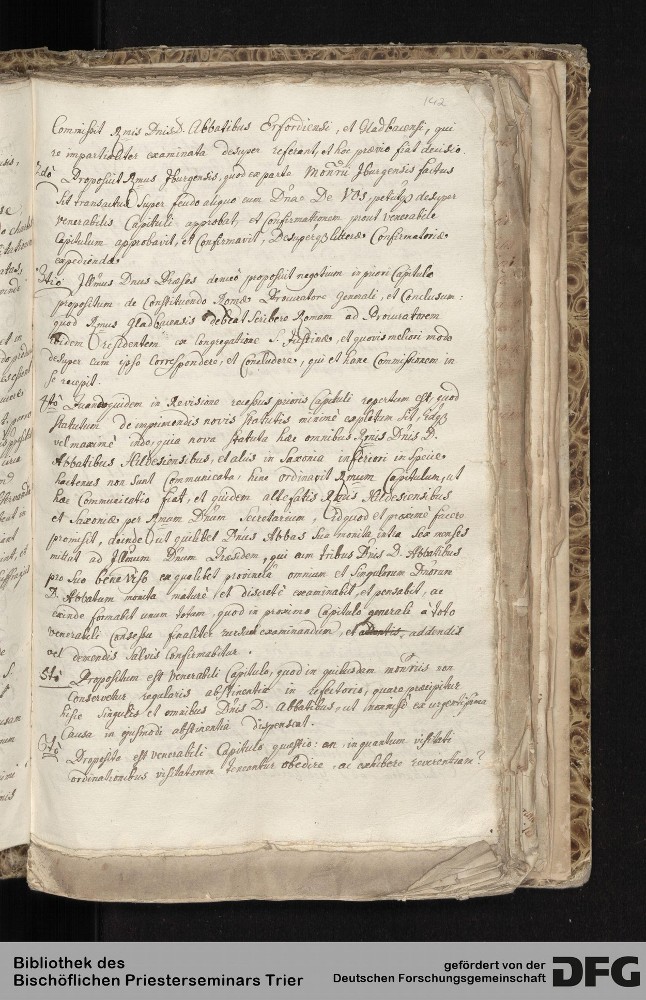 142
Commisit Rmis Dnis D. Abbatibus Erfordiensi, et Gladbacensi, qui
re impartialiter examinata desuper referant, et hoc prævio fiat decisio.
2dò Proposuit Rmus Iburgensis, quod ex parte Monrii Iburgensis factus
sit transactus super feudo aliquo cum Dna De Vos, petiitq desuper
venerabilis Capituli approbat. et confirmationem prout venerabile
Capitulum approbavit, et confirmavit, Desuperq litteræ Confirmatoriæ
expediendæ
3tiò Illmus Dnus Præses denuò proposuit negotium in priori Capitulo
propositum de Constituendo Romæ Procuratore Generali, et Conclusum:
quod Rmus Gladbacensis debeat scribere Romam ad Procuratorem
ibidem residentem ex Congregatione S. Justinæ, et quovis meliori modo
desuper cum ipso correspondere, et concludere, qui et hanc Commissionem in
se recepit.
4tò Quandoquidem in Revisione recessus prioris Capituli repertum est, quod
statutum de imprimendis novis statutis minimè expletum sit, idq
vel maximè ideo, quia nova statuta hæc omnibus Rmis Dnis D.
Abbatibus Hildesiensibus, et aliis in Saxonia inferiori in specie
hactenus non sunt Communicata: hinc ordinavit Rmum Capitulum, ut
hæc Communicatio fiat, et quidem altefatis Rmis Hildesiensibus
et Saxoniæ per Rmum Dnum Secretarium, idquod et proximè facere
promisit, deinde ut quilibet Dnus Abbas sua monita intra sex menses
mittat ad Illmum Dnum Præsidem, qui cum tribus Dnis D. Abbatibus
pro suo bene viso ex qualibet provincia omnium et singulorum Dnorum
D. Abbatum monita maturè, et discretè examinabit, et pensabit, ac
exinde formabit unum totum, quod in proximo Capitulo generali à toto
venerabili Consessu finaliter rursum examinandum, et addendis
vel demendis salvis confirmabitur.
5tò Propositum est venerabili Capitulo, quod in quibusdam monriis non
Conservetur regularis abstinentia in refectorio, quare præcipitur
hisce singulis et omnibus Dnis D. Abbatibus, ut nonnisi ex urgentissima
Causa in ejusmodi abstinentia dispensent.
6tò Proposita est venerabili Capitulo quæstio: an, in quantum visitati
ordinationibus visitatorum teneantur obedire, ac exhibere reverentiam?
Bibliothek des
Bischöflichen Priesterseminars Trier
gefördert von der
Deutschen Forschungsgemeinschaft
DFG